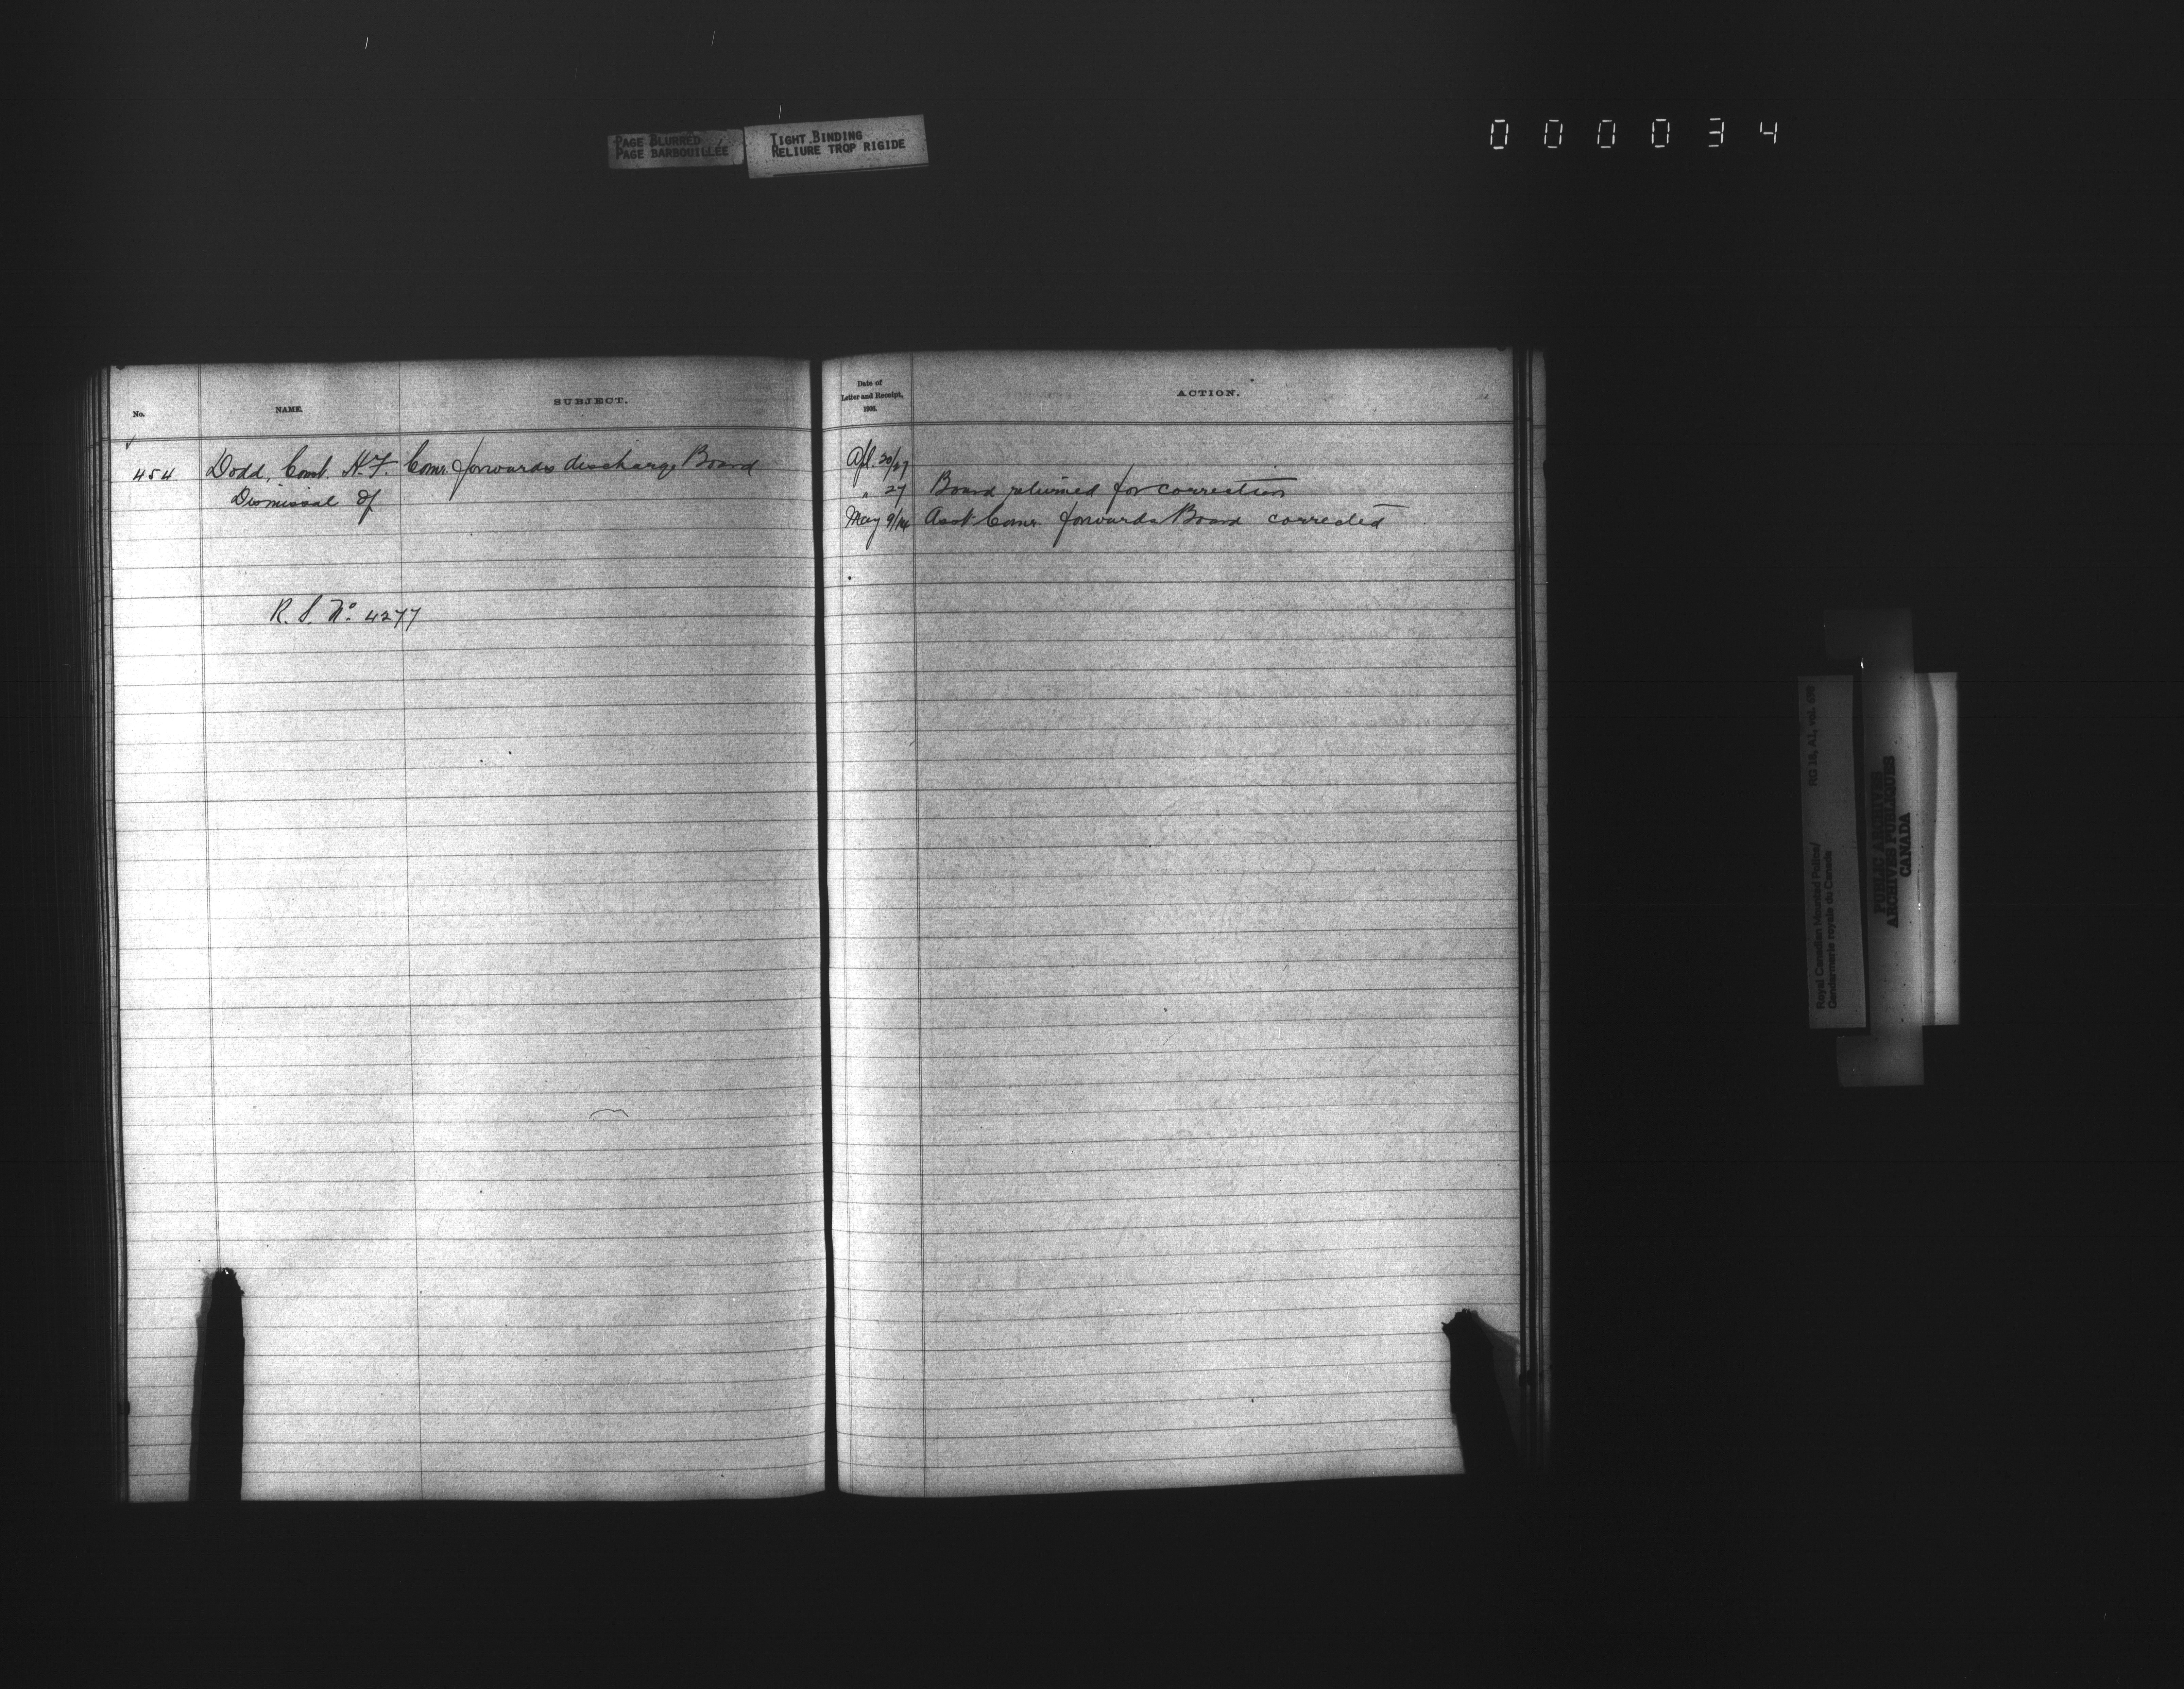 PAGE BLURRED
PAGE BARBOUILLÉE
TIGHT BINDING
RELIURE TROP RIGIDE
000034
No.
NAME.
SUBJECT.
Date of
Letter and Receipt,
1906.
ACTION.
454 Dodd, Const. H.F. Comr. forwards discharge Board Apl. 20/27
Dismissal of
" 27 Board returned for correction
May 9/14 Asst. Comr. forwards Board corrected
R. S. No. 4277
Royal Canadian Mounted Police/ RG 18, A1, vol. 696
Gendarmerie royale du Canada
PUBLIC ARCHIVES
ARCHIVES PUBLIQUES
CANADA